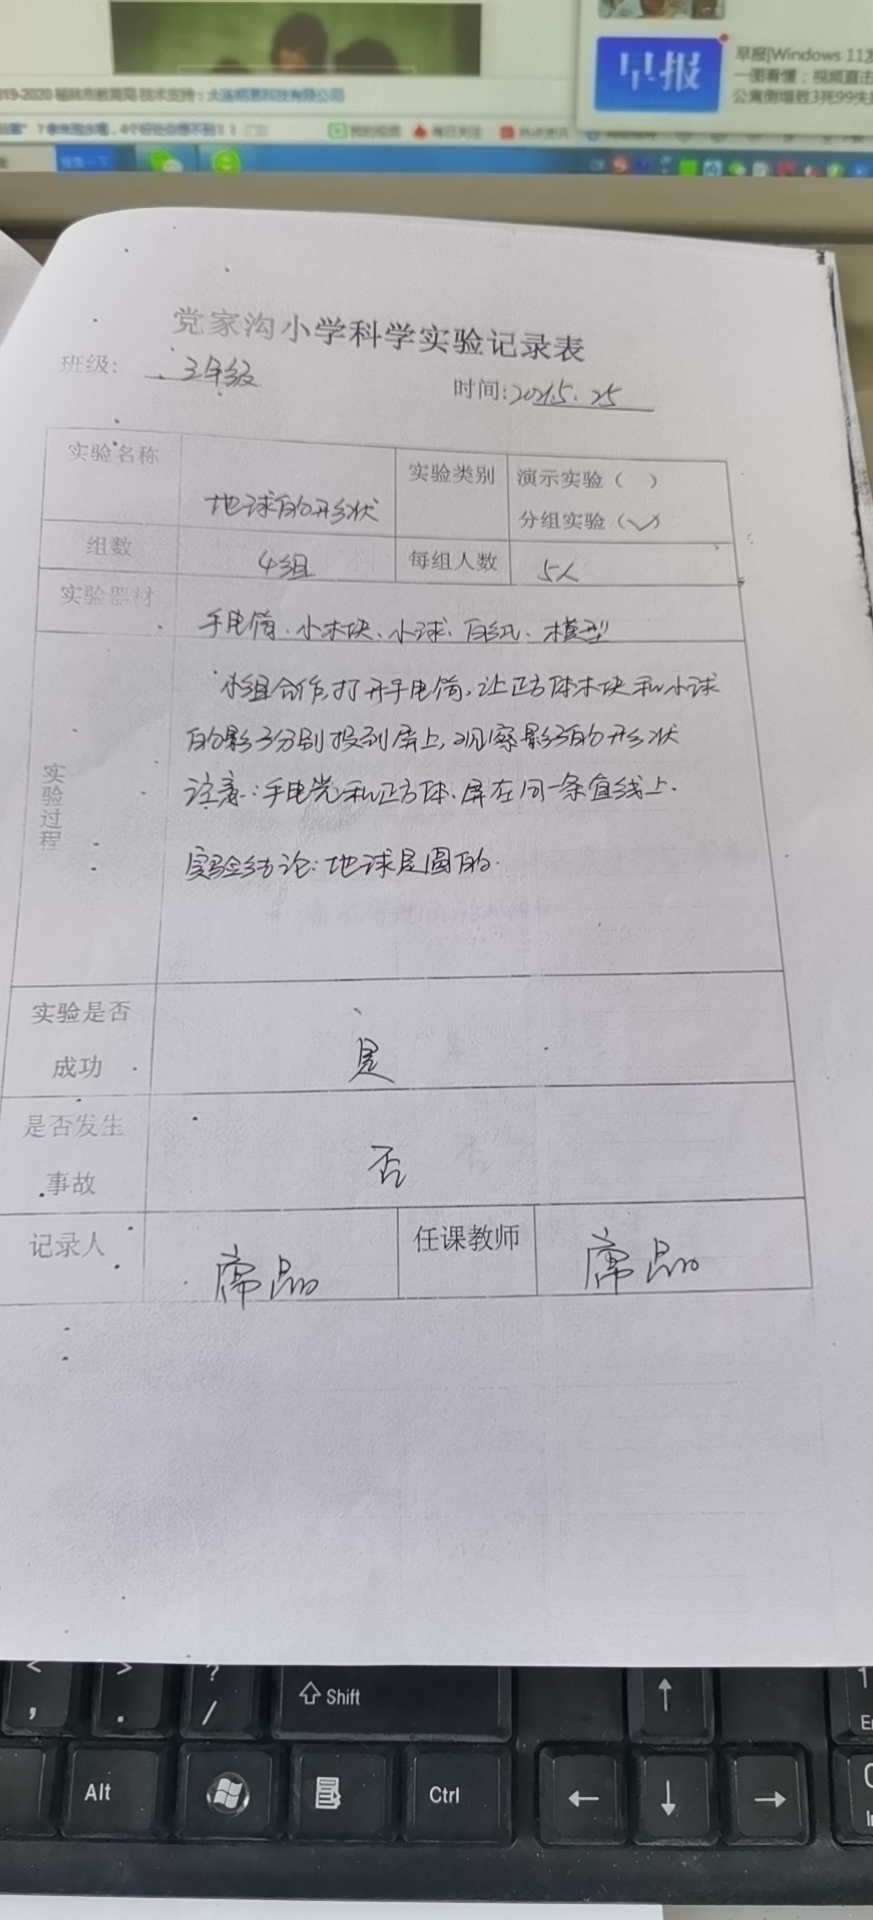 早报
早报|Windows 11发
一图看懂；视频直击
公寓倒塌致3死99失
019-2020 榆林市教育局 技术支持：大连明慕科技有限公司
我的视频 每日关注 热点资讯
党家沟小学科学实验记录表
班级: 三年级
时间:2021.5.25
实验名称 地球的形状 实验类别 演示实验（ ）
分组实验（✓）
组数 4组 每组人数 5人
实验器材 手电筒、小木块、小球、白纸、模型
实验过程
小组合作,打开手电筒,让正方体木块和小球
的影子分别投到屏上,观察影子的形状
注意:手电筒和正方体、屏在同一条直线上.
实验结论:地球是圆的.
实验是否
成功 是
是否发生
事故 否
记录人 席晶 任课教师 席晶
< > ? Shift ↑
, . /
Alt Ctrl ← ↓ →